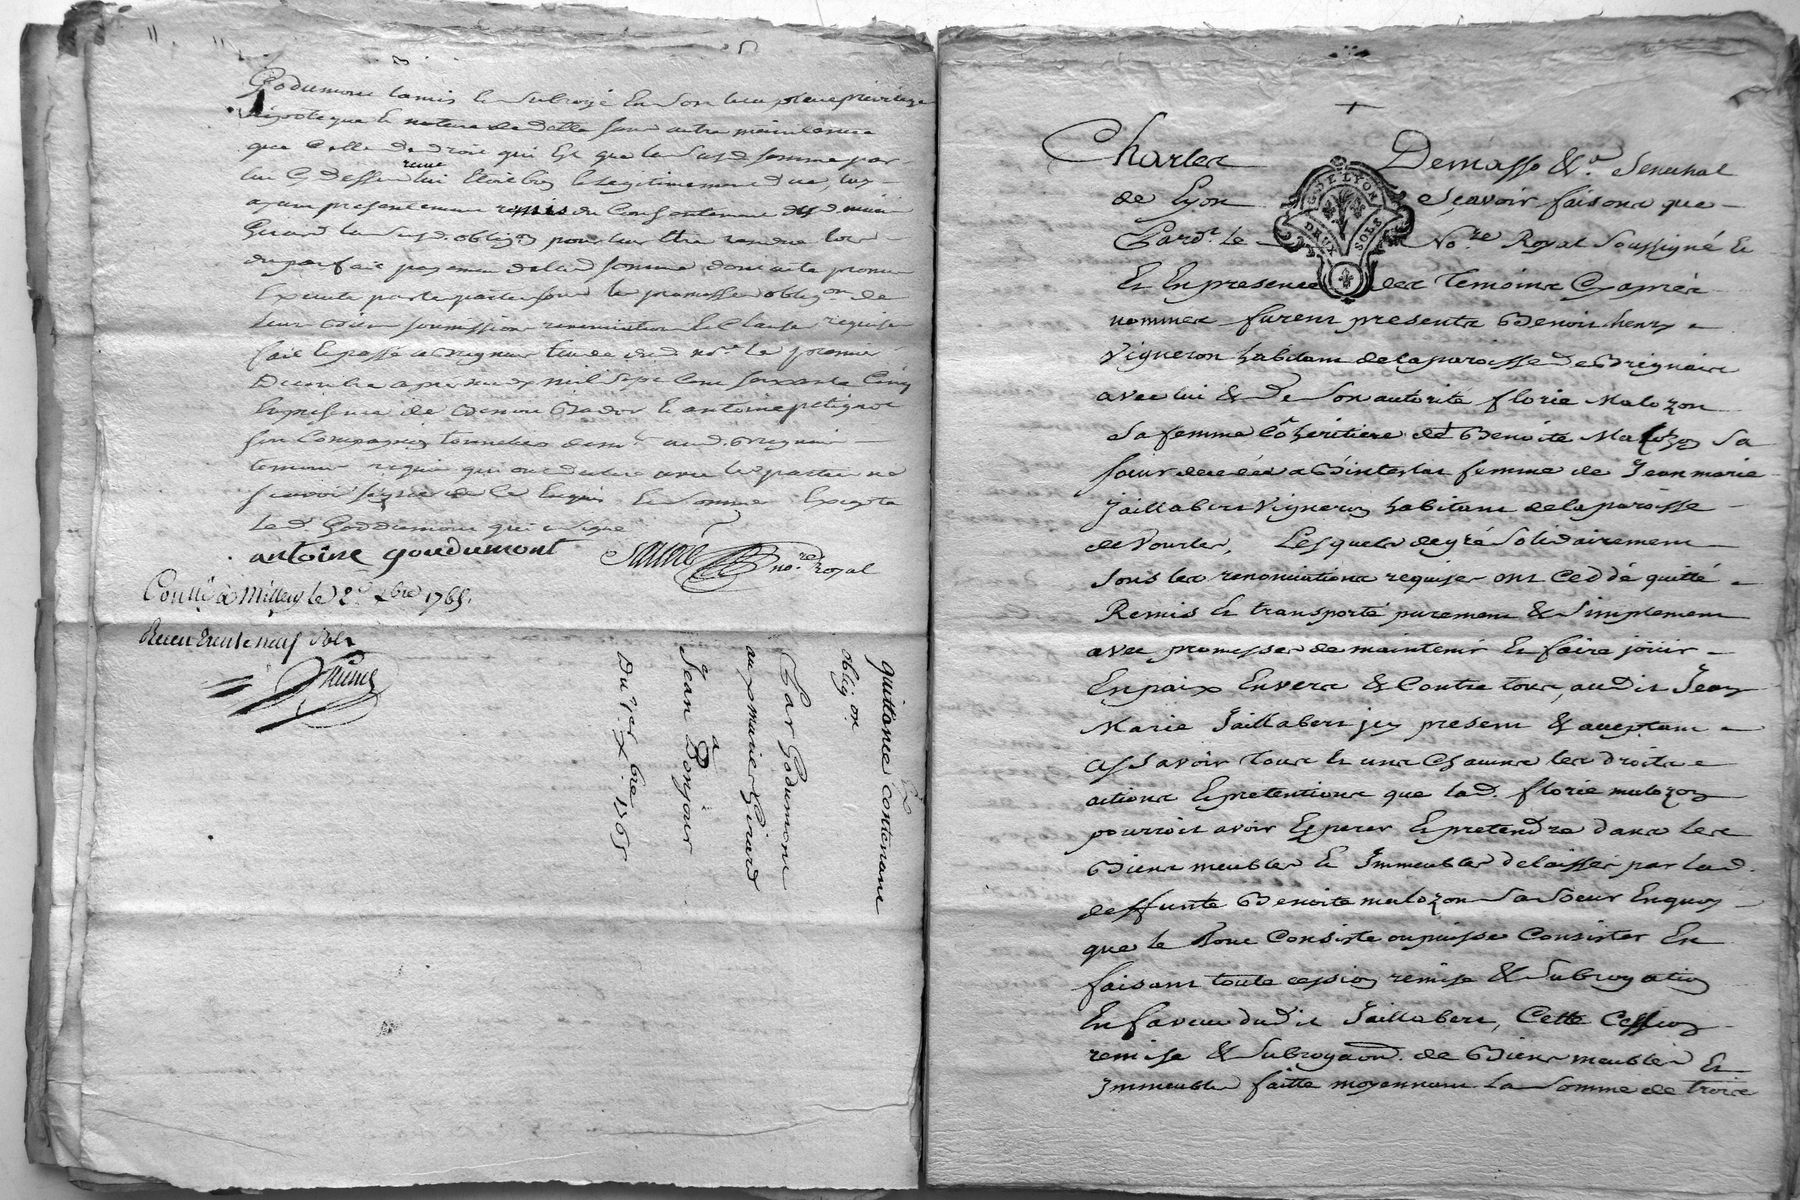 Godumont la mis & subrogé En son lieu place privilege
hipoteque & nature de dette sans autre maintenue
que Celle de droit qui Est que la susd somme par
lui Cy dessus reçue lui Etoit bien & legitimement due, luy
ayant presentement remis du Consentement desd. mariés
Girard la susd. oblig.on pour leur Etre rendue lors
du parfait payement de lad somme dont acte promis
Executé par les parties sous les promesses oblig.on de
leur biens soumissions renonciations & Clauses requises
fait & passé a Brignais Etude dud. no.re le premier
Decembre apres midy mil sept Cent soixante Cinq
En presence de Benoit Bador & antoine petignot
son Compagnon tonnelier dem.t aud. Brignais
temoins requis qui ont declaré avec les parties ne
scavoir signer de Ce Enquis & sommés Excepté
led Goddumont qui a signé
antoine goudumont
no.re royal
Con.llé à Millery le 2.e Xbre 1765.
Receu trente neuf sols
quittance contenant
oblig.on
Par Godumont
aux mariés Girard
a
Jean Bonjour
Du 1er Xbre 1765
Charles Demasso &.a Senechal
de Lyon Sçavoir faisons que
Pard.t le No.re Royal Soussigné &
Et En presence des Temoins Cy aprés
G DE LYON
DEUX SOLS
nommés furent presents Benoit henry
Vigneron habitant de la paroisse de Brignais
avec lui & De Son autorité florie Malozon
Sa femme Cohéritiere de Benoite Malozon Sa
soeur decedée ab intestat femme de Jean marie
Jaillabert Vigneron habitant de la paroisse
de Vourles, Lesquels de gré Solidairement
Sous les renonciations requises ont Ceddé quitté
Remis & transporté purement & Simplement
avec promesses de maintenir & faire jöuir
En paix Envers & Contre tous, audit Jean
Marie Jaillabert jcy present & acceptant
assavoir tous & uns Chacuns les droits
actions & pretentions que lad. florie malozon
pourroit avoir Esperer & pretendre dans les
Biens meubles & Immeubles delaissés par lad.
deffunte Benoite malozon Sa Soeur En quoy
que le tout Consiste ou puisse Consister En
faisant toute cession remise & Subrogation
En faveur dudit Jaillabert, Cette Cession
remise & Subrogaōn. de Biens meubles &
Jmmeubles faitte moyennant la Somme de trois